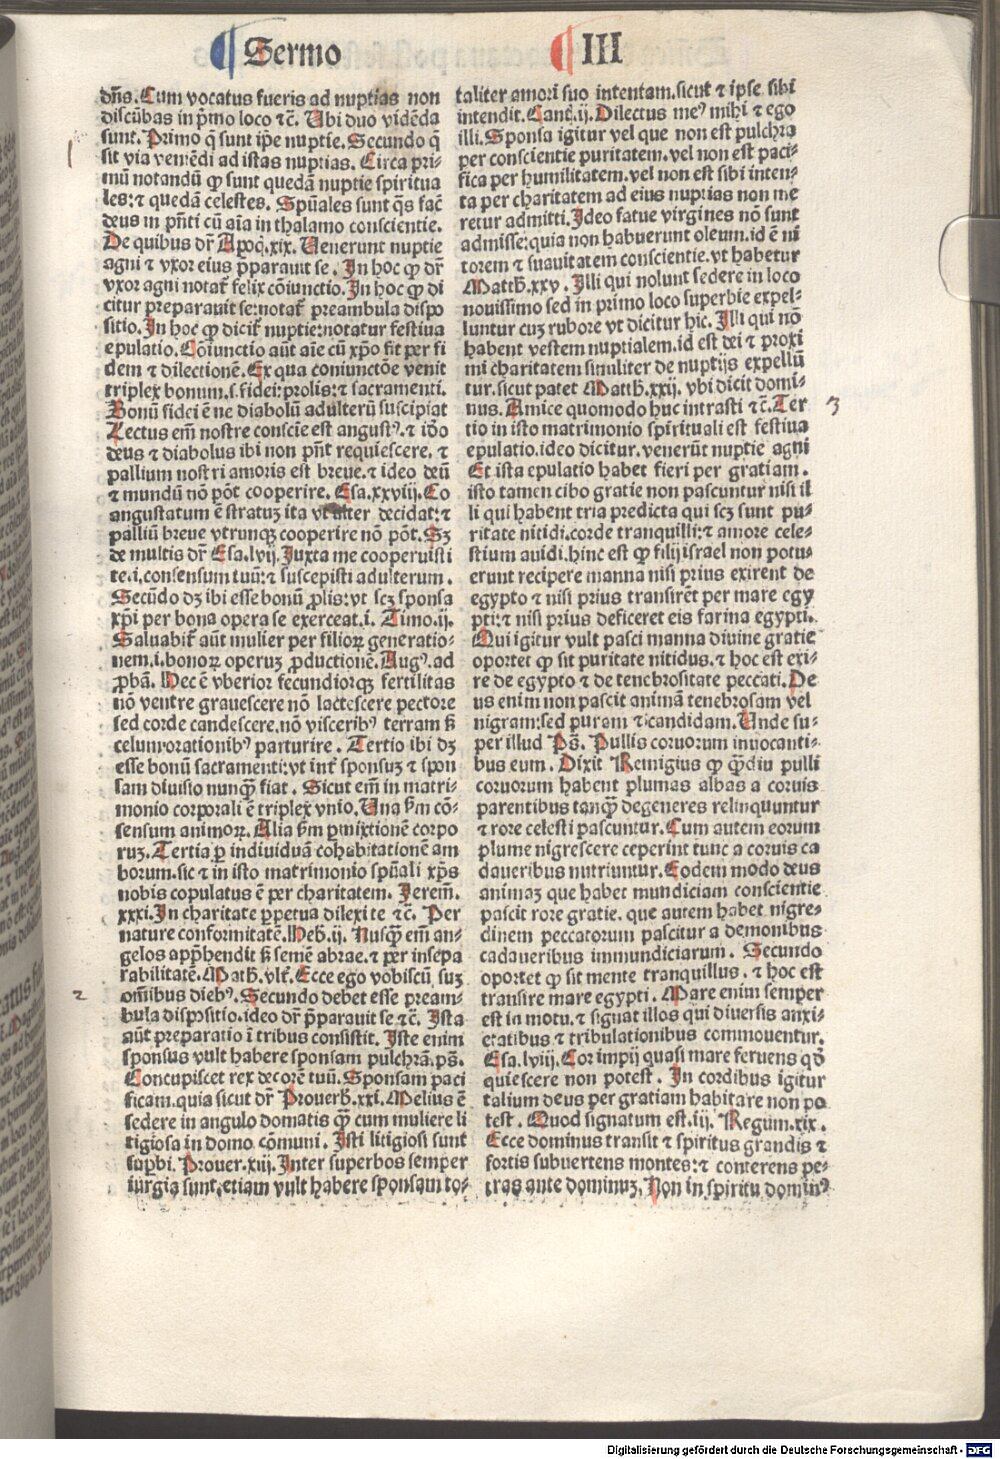 Sermo III
dñs. Cum vocatus fueris ad nuptias non
discūbas in p̄mo loco ⁊c̄. Ubi duo vidēda
sunt. Primo q̄ sunt ip̄e nuptie. Secundo q̄
sit via veniēdi ad istas nuptias. Circa pri⸗
mū notandū ꝙ sunt quedā nuptie spiritua
les:⁊ quedā celestes. Spūales sunt q̄s fac̄
deus in pn̄ti cū aīa in thalamo conscientie.
De quibus dr̄ Apoc̄.xix. Venerunt nuptie
agni ⁊ vxor eius p̄parauit se. In hoc ꝙ dr̄
vxor agni notat᷑ felix cōiunctio. In hoc ꝙ di
citur preparauit se:notat᷑ preambula dispo
sitio. In hoc ꝙ dicit᷑ nuptie:notatur festiua
epulatio. Cōiunctio aūt aīe cū xp̄o fit per fi
dem ⁊ dilectionē. Ex qua coniunctōe venit
triplex bonum.s.fidei:prolis:⁊ sacramenti.
Bonū fidei ē ne diabolū adulterū suscipiat
Lectus em̄ nostre conscīe est angustꝰ.⁊ iō̄o
deus ⁊ diabolus ibi non pn̄t requiescere. ⁊
pallium nostri amoris est breue.⁊ ideo deū
⁊ mundū nō pōt cooperire. Esa.xxviij. Co
angustatum ē stratuꝫ ita vt alter decidat:⁊
palliū breue vtrunqꝫ cooperire nō pōt. Sꝫ
de multis dr̄ Esa.lvij. Juxta me cooperuisti
te.i.consensum tuū:⁊ suscepisti adulterum.
Secūdo dꝫ ibi esse bonū ꝓlis:vt scꝫ sponsa
xp̄i per bona opera se exerceat.i. Timo.ij.
Saluabit᷑ aūt mulier per filioꝝ generatio⸗
nem.i.bonoꝝ operuꝫ ꝓductionē. Augꝰ. ad
ꝓbā. Hec ē vberior fecundiorqꝫ fertilitas
nō ventre grauescere nō lactescere pectore
sed corde candescere.nō visceribꝰ terram sꝫ
celum orationibꝰ parturire. Tertio ibi dꝫ
esse bonū sacramenti:vt int᷑ sponsuꝫ ⁊ spon
sam diuisio nunqꝫ fiat. Sicut em̄ in matri⸗
monio corporali ē triplex vnio. Una ẜm cō⸗
sensum animoꝝ. Alia ẜm ꝑmixtionē corpo
ruꝫ. Tertia ꝑ indiuiduā cohabitationē am
borum.sic ⁊ in isto matrimonio spūali xp̄s
nobis copulatus ē per charitatem. Jerem̄.
xxxi. In charitate ꝑpetua dilexi te ⁊c̄. Per
nature conformitatē. Heb̄.ij. Nusqꝫ em̄ an⸗
gelos app̄hendit sꝫ semē abrae.⁊ per insepa
rabilitatē. Math̄. vlt᷑. Ecce ego vobiscū suꝫ
om̄ibus diebꝰ. Secundo debet esse pream⸗
bula dispositio.ideo dr̄ p̄parauit se ⁊c̄. Ista
aūt preparatio ī tribus consistit. Iste enim
sponsus vult habere sponsam pulchrā. ps̄.
Concupiscet rex decorē tuū. Sponsam paci
ficam.quia sicut dr̄ Prouerb̄.xxi. Melius ē
sedere in angulo domatis qꝫ cum muliere li
tigiosa in domo cōmuni. Isti litigiosi sunt
suꝑbi. Prouer.xiij. Inter superbos semper
iurgia sunt.etiam vult habere sponsam to⸗
taliter amori suo intentam.sicut ⁊ ipse sibi
intendit. Cant̄.ij. Dilectus meꝰ mihi ⁊ ego
illi. Sponsa igitur vel que non est pulchra
per conscientie puritatem.vel non est paci⸗
fica per humilitatem.vel non est sibi inten⸗
ta per charitatem ad eius nuptias non me
retur admitti. Ideo fatue virgines nō sunt
admisse:quia non habuerunt oleum.id ē ni
torem ⁊ suauitatem conscientie.vt habetur
Matth̄.xxv. Illi qui nolunt sedere in loco
nouissimo sed in primo loco superbie expel⸗
luntur cuꝫ rubore vt dicitur hic. Illi qui nō
habent vestem nuptialem.id est dei ⁊ proxi
mi charitatem similiter de nuptijs expellū
tur.sicut patet Matth̄.xxij. vbi dicit domi⸗
nus. Amice quomodo huc intrasti ⁊c̄. Ter
tio in isto matrimonio spirituali est festiua
epulatio.ideo dicitur.venerūt nuptie agni
Et ista epulatio habet fieri per gratiam.
isto tamen cibo gratie non pascuntur nisi il
li qui habent tria predicta qui scꝫ sunt pu⸗
ritate nitidi.corde tranquilli:⁊ amore cele⸗
stium auidi.hinc est ꝙ filij israel non potu⸗
erunt recipere manna nisi prius exirent de
egypto ⁊ nisi prius transirēt per mare egy
pti:⁊ nisi prius deficeret eis farina egypti.
Qui igitur vult pasci manna diuine gratie
oportet ꝙ sit puritate nitidus.⁊ hoc est exi⸗
re de egypto ⁊ de tenebrositate peccati. De
us enim non pascit animā tenebrosam vel
nigram:sed puram ⁊ candidam. Unde su⸗
per illud Ps̄. Pullis coruorum inuocanti⸗
bus eum. Dixit Remigius ꝙ qꝫdiu pulli
coruorum habent plumas albas a coruis
parentibus tanqꝫ degeneres relinquuntur
⁊ rore celesti pascuntur. Cum autem eorum
plume nigrescere ceperint tunc a coruis ca
daueribus nutriuntur. Eodem modo deus
animaꝫ que habet mundiciam conscientie
pascit rore gratie. que autem habet nigre⸗
dinem peccatorum pascitur a demonibus
cadaueribus immundiciarum. Secundo
oportet ꝙ sit mente tranquillus. ⁊ hoc est
transire mare egypti. Mare enim semper
est in motu.⁊ signat illos qui diuersis anxi⸗
etatibus ⁊ tribulationibus commouentur.
Esa.lviij. Cor impij quasi mare feruens qd̄
quiescere non potest. In cordibus igitur
talium deus per gratiam habitare non po
test. Quod signatum est.iij. Regum.xix.
Ecce dominus transit ⁊ spiritus grandis ⁊
fortis subuertens montes:⁊ conterens pe⸗
tras ante dominuꝫ. Non in spiritu dominꝰ
2
3
Digitalisierung gefördert durch die Deutsche Forschungsgemeinschaft - DFG